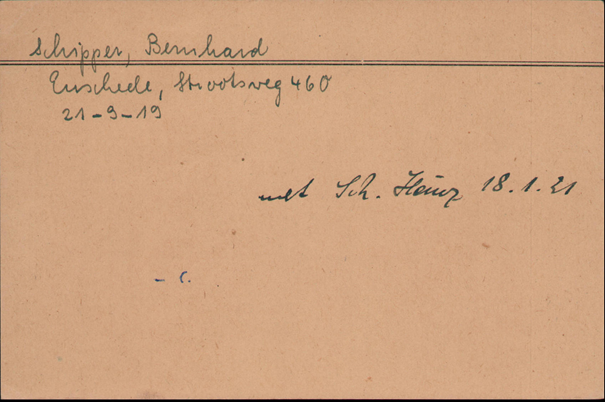 Schipper, Bernhard
Enschede, Strootsweg 460
21-9-19
met Sch. Heinz 18.1.21
- c.